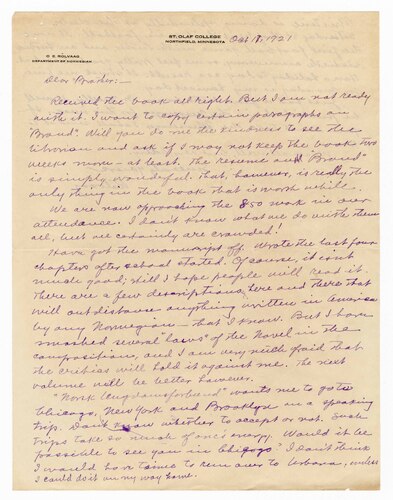 ST. OLAF COLLEGE
NORTHFIELD, MINNESOTA
Oct 1921
O. E. ROLVAAG
DEPARTMENT OF NORWEGIAN
Dear Brother:-
Received the book all right. But I am not ready
with it. I want to copy certain paragraphs on
"Brand". Will you do me the kindness to see the
librarian and ask if I may not keep the book two
weeks more - at least. The resume and "Brand"
is simply wonderful. That, however, is really the
only thing in the book that is worth while.
We are now approaching the 850 mark in our
attendance. I don't know what we do with them
all, but we certainly are crowded!
Have got the manuscript off. Wrote the last four
chapters after school stated. Of course, it isn't
much good; still I hope people will read it.
There are a few descriptions here and there that
will outdistance anything written in America
by any Norwegian - that I know. But I have
smashed several laws of the Novel in the
composition, and I am very much afraid that
the critics will hold it against me. The next
volume will be better however.
"Norsk Ungdomsforbund" wants me to go to
Chicago, New York and Brooklyn on a speaking
trip. Don't know whether to accept or not. Such
trips take so much of one's energy. Would it be
possible to see you in Chicago? I don't think
I would have time to run over to Urbana, unless
I could do it on my way home.